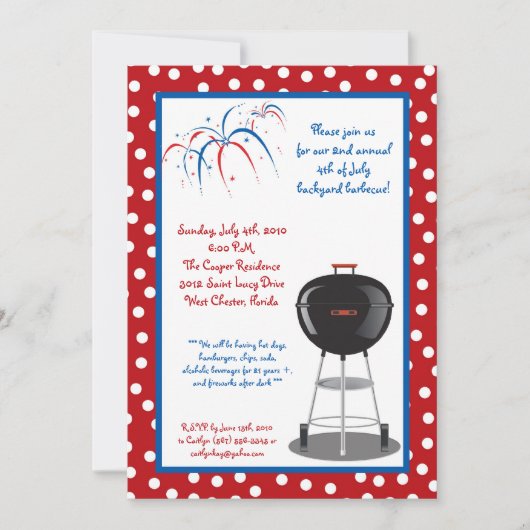 Please join us
for our 2nd annual
4th of July
backyard barbecue!
Sunday, July 4th, 2010
6:00 P.M.
The Cooper Residence
3012 Saint Lucy Drive
West Chester, Florida
*** We will be having hot dogs,
hamburgers, chips, soda,
alcoholic beverages for 21 years +,
and fireworks after dark ***
R.S.V.P. by June 13th, 2010
to Caitlyn (567) 556-3345 or
caitlynkay@yahoo.com